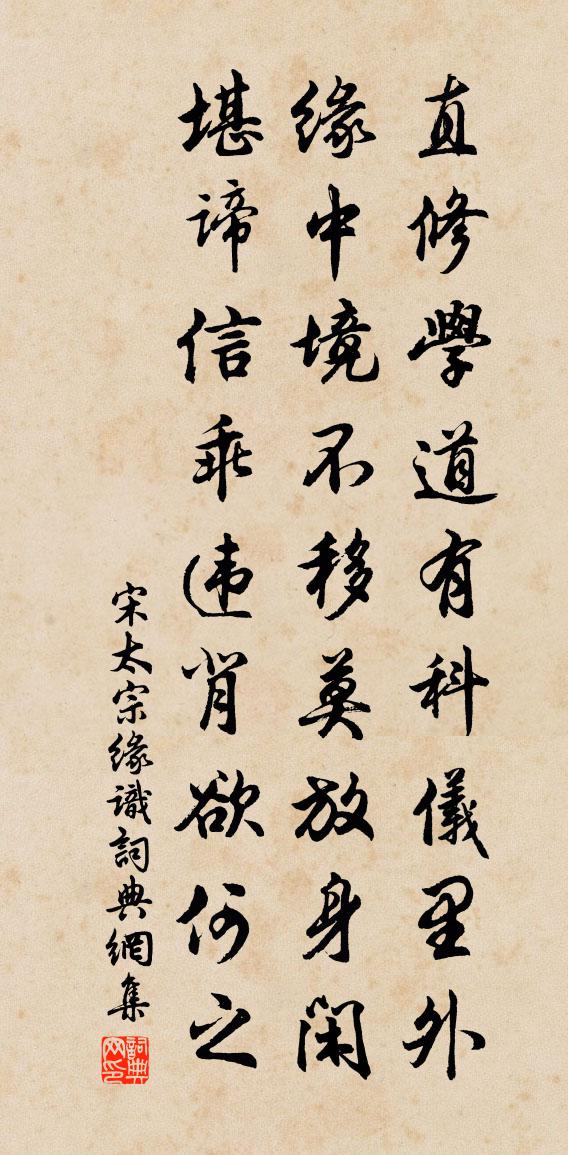 直修學道有科儀里外
緣中境不移莫放身閑
堪諦信乖违背欲何之
宋太宗緣識詞典網集
詞典网印